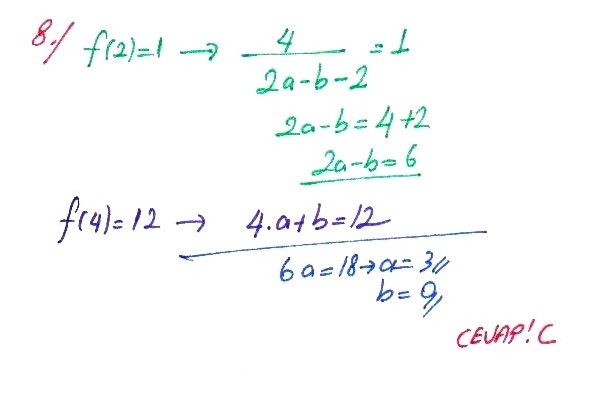 8./ f(2)=1 → 4/(2a-b-2) = 1
2a-b=4+2
2a-b=6
f(4)=12 → 4.a+b=12
6a=18→a=3//
b=0//
CEVAP! C